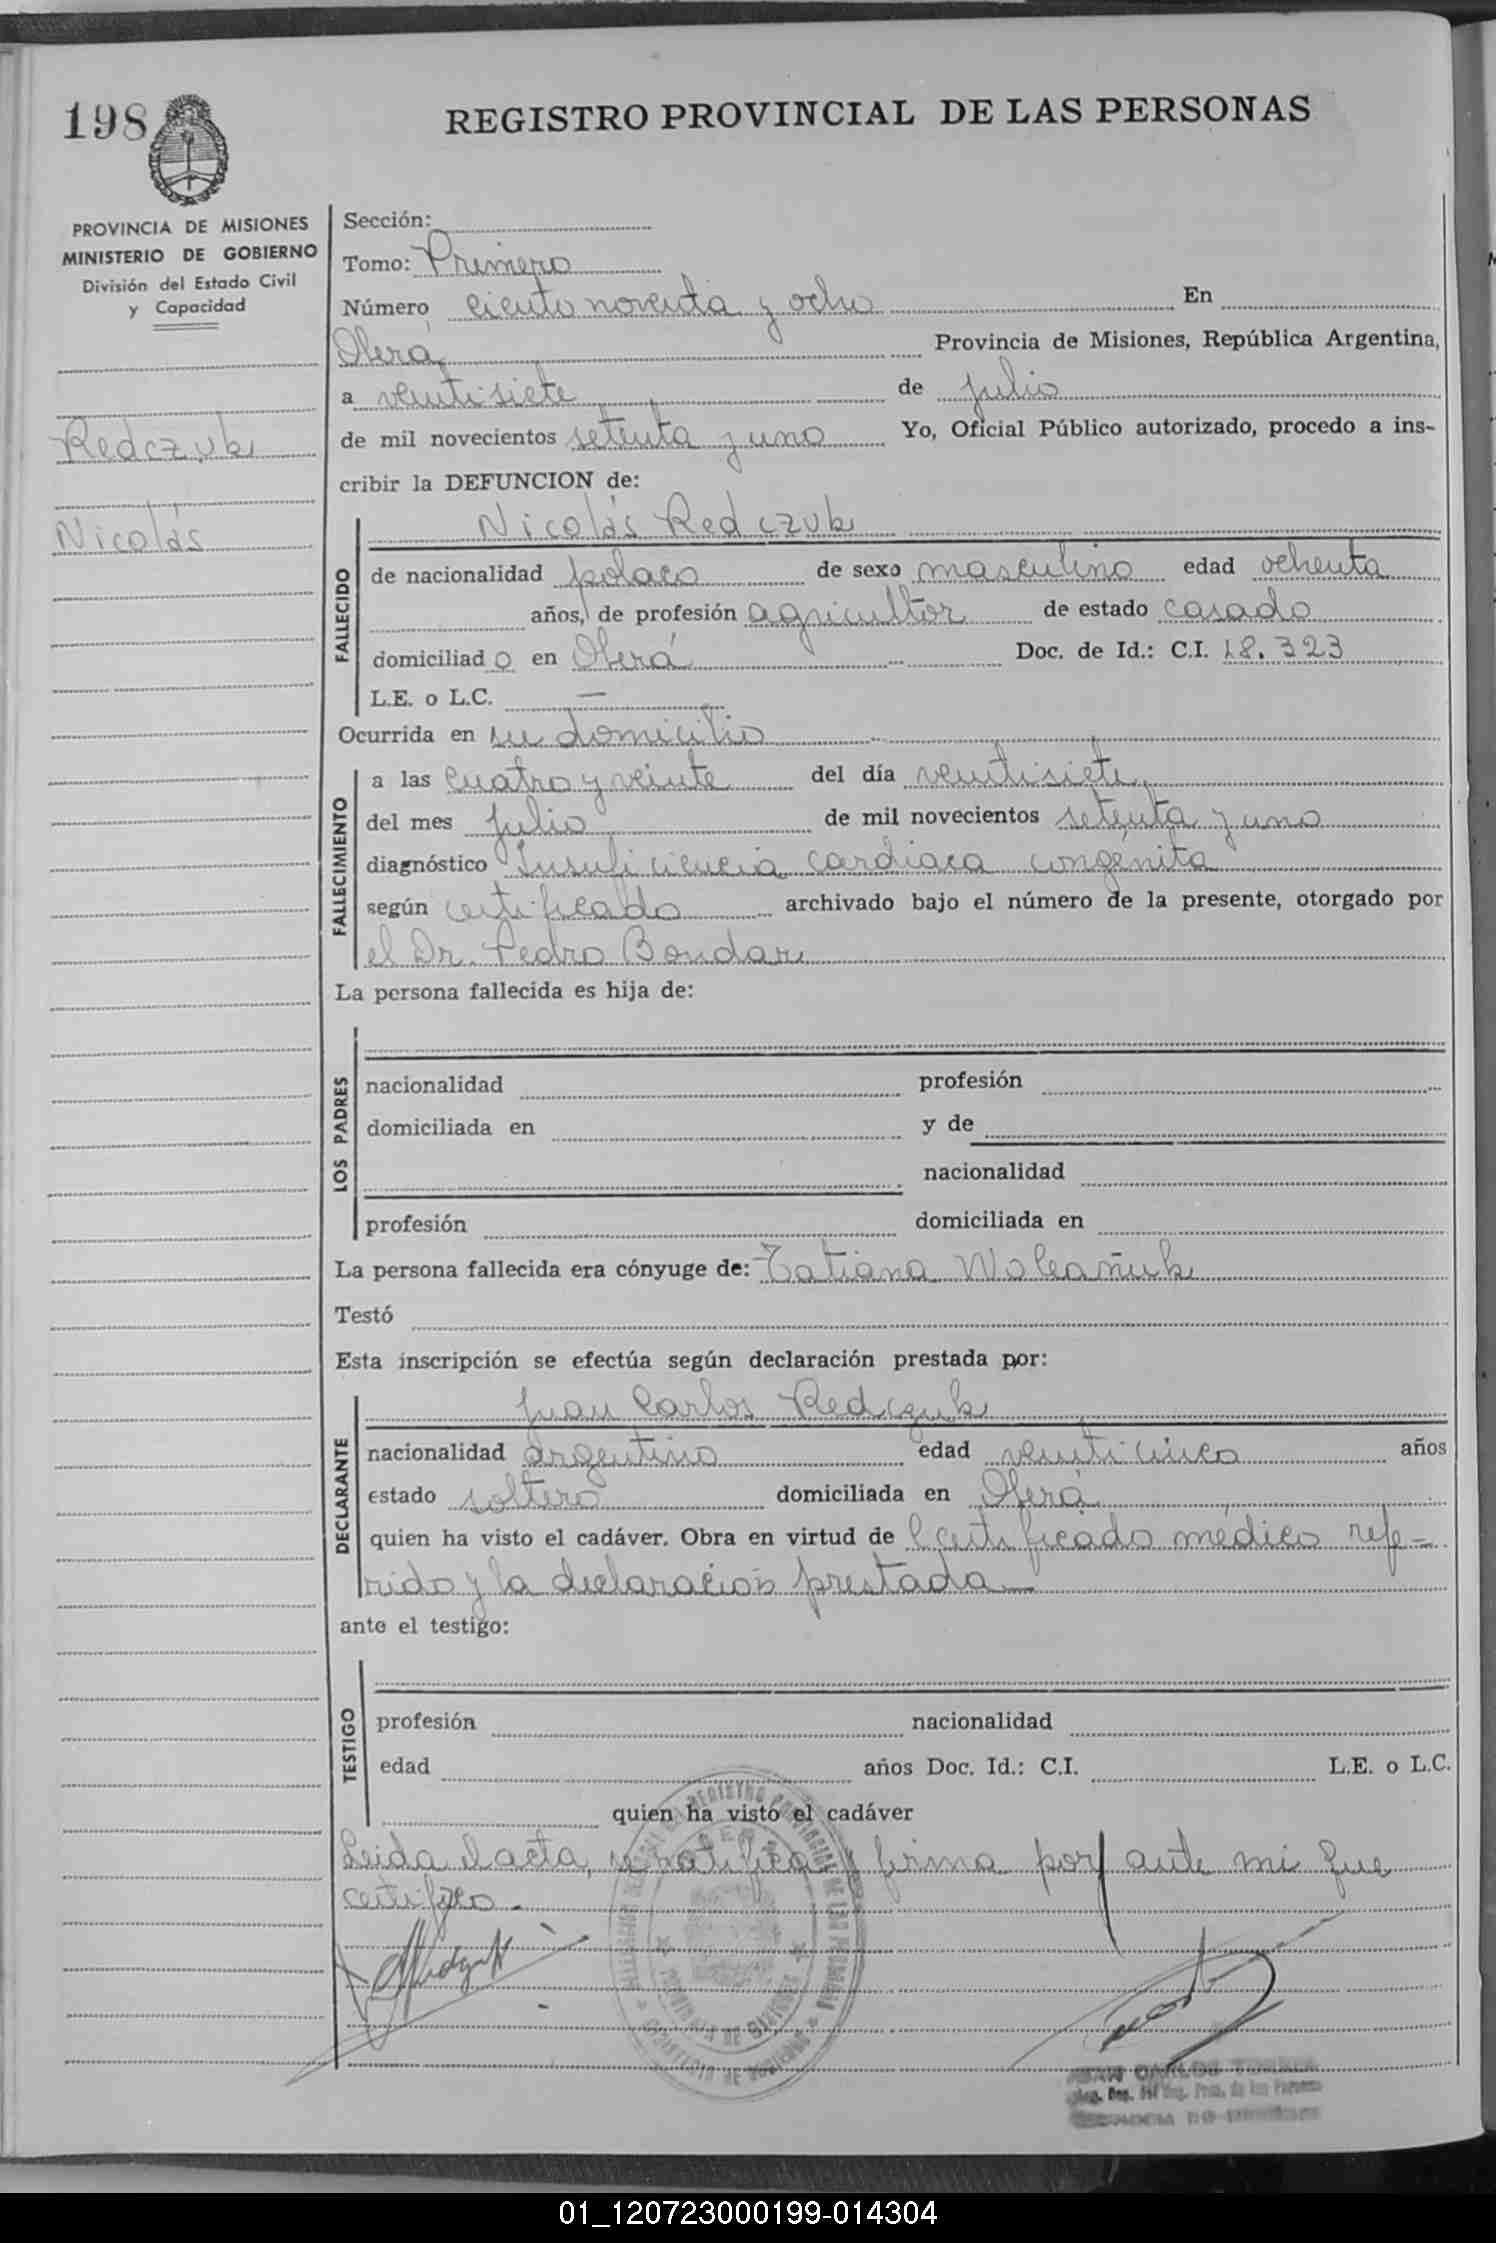 198
REGISTRO PROVINCIAL DE LAS PERSONAS
PROVINCIA DE MISIONES
MINISTERIO DE GOBIERNO
División del Estado Civil
y Capacidad
Redczuk
Nicolás
Sección:
Tomo: Primero
Número ciento noventa y ocho En
Oberá Provincia de Misiones, República Argentina,
a veintisiete de julio
de mil novecientos setenta y uno Yo, Oficial Público autorizado, procedo a ins-
cribir la DEFUNCION de:
FALLECIDO
Nicolás Redczuk
de nacionalidad polaco de sexo masculino edad ochenta
años, de profesión agricultor de estado casado
domiciliado en Oberá Doc. de Id.: C.I. 18.323
L.E. o L.C. —
Ocurrida en su domicilio
FALLECIMIENTO
a las cuatro y veinte del día veintisiete
del mes julio de mil novecientos setenta y uno
diagnóstico Insuficiencia cardiaca congénita
según certificado archivado bajo el número de la presente, otorgado por
el Dr. Pedro Bondar
La persona fallecida es hija de:
LOS PADRES
nacionalidad profesión
domiciliada en y de
nacionalidad
profesión domiciliada en
La persona fallecida era cónyuge de: Tatiana Woleañuk
Testó
Esta inscripción se efectúa según declaración prestada por:
DECLARANTE
Juan Carlos Redczuk
nacionalidad argentino edad veinticinco años
estado soltero domiciliada en Oberá
quien ha visto el cadáver. Obra en virtud del certificado médico refe=
rido y la declaración prestada
ante el testigo:
TESTIGO
profesión nacionalidad
edad años Doc. Id.: C.I. L.E. o L.C.
quien ha visto el cadáver
Leida el acta, se ratifica y firma por ante mi que
certifico.
JUAN CARLOS
PROVINCIA DE MISIONES
01_120723000199-014304